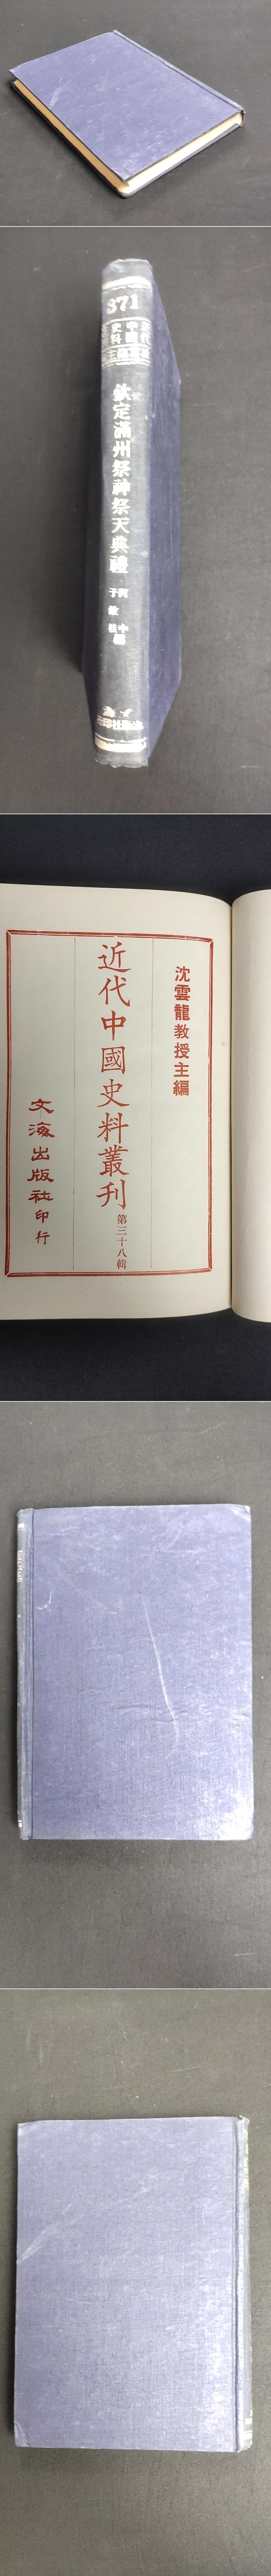 371
近代
中國
史料
欽定滿州祭神祭天典禮
阿
于
敏
中
編
沈雲龍教授主編
近代中國史料叢刊 第三十八輯
文海出版社印行